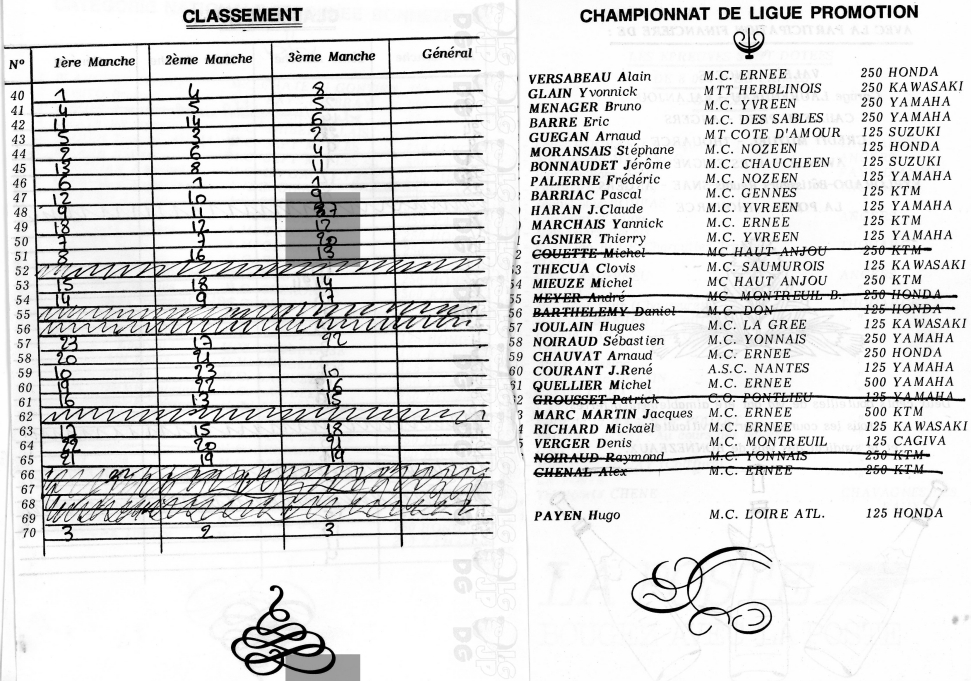 CLASSEMENT
N° 1ère Manche 2ème Manche 3ème Manche Général
40 1 4 8
41 4 5 5
42 11 14 6
43 5 3 2
44 2 6 4
45 13 8 11
46 6 1 1
47 12 10 9
48 9 11
49 18 12 12
50 7 7
51 8 16 13
52
53 15 18 14
54 14 9 17
55
56
57 23 17 22
58 20 21
59 10 23 10
60 19 22 16
61 16 13 15
62
63 17 15 18
64 22 20 21
65 21 19 19
66
67
68
69
70 3 2 3
CHAMPIONNAT DE LIGUE PROMOTION
VERSABEAU Alain M.C. ERNEE 250 HONDA
GLAIN Yvonnick MTT HERBLINOIS 250 KAWASAKI
MENAGER Bruno M.C. YVREEN 250 YAMAHA
BARRE Eric M.C. DES SABLES 250 YAMAHA
GUEGAN Arnaud MT COTE D'AMOUR 125 SUZUKI
MORANSAIS Stéphane M.C. NOZEEN 125 HONDA
BONNAUDET Jérôme M.C. CHAUCHEEN 125 SUZUKI
PALIERNE Frédéric M.C. NOZEEN 125 YAMAHA
BARRIAC Pascal M.C. GENNES 125 KTM
HARAN J.Claude M.C. YVREEN 125 YAMAHA
MARCHAIS Yannick M.C. ERNEE 125 KTM
GASNIER Thierry M.C. YVREEN 125 YAMAHA
2 COUETTE Michel MC HAUT ANJOU 250 KTM
53 THECUA Clovis M.C. SAUMUROIS 125 KAWASAKI
54 MIEUZE Michel MC HAUT ANJOU 250 KTM
55 MEYER André MC MONTREUIL B. 250 HONDA
56 BARTHELEMY Daniel M.C. DON 125 HONDA
57 JOULAIN Hugues M.C. LA GREE 125 KAWASAKI
58 NOIRAUD Sébastien M.C. YONNAIS 250 YAMAHA
59 CHAUVAT Arnaud M.C. ERNEE 250 HONDA
60 COURANT J.René A.S.C. NANTES 125 YAMAHA
61 QUELLIER Michel M.C. ERNEE 500 YAMAHA
2 GROUSSET Patrick C.O. PONTLIEU 125 YAMAHA
3 MARC MARTIN Jacques M.C. ERNEE 500 KTM
4 RICHARD Mickaël M.C. ERNEE 125 KAWASAKI
5 VERGER Denis M.C. MONTREUIL 125 CAGIVA
NOIRAUD Raymond M.C. YONNAIS 250 KTM
CHENAL Alex M.C. ERNEE 250 KTM
PAYEN Hugo M.C. LOIRE ATL. 125 HONDA